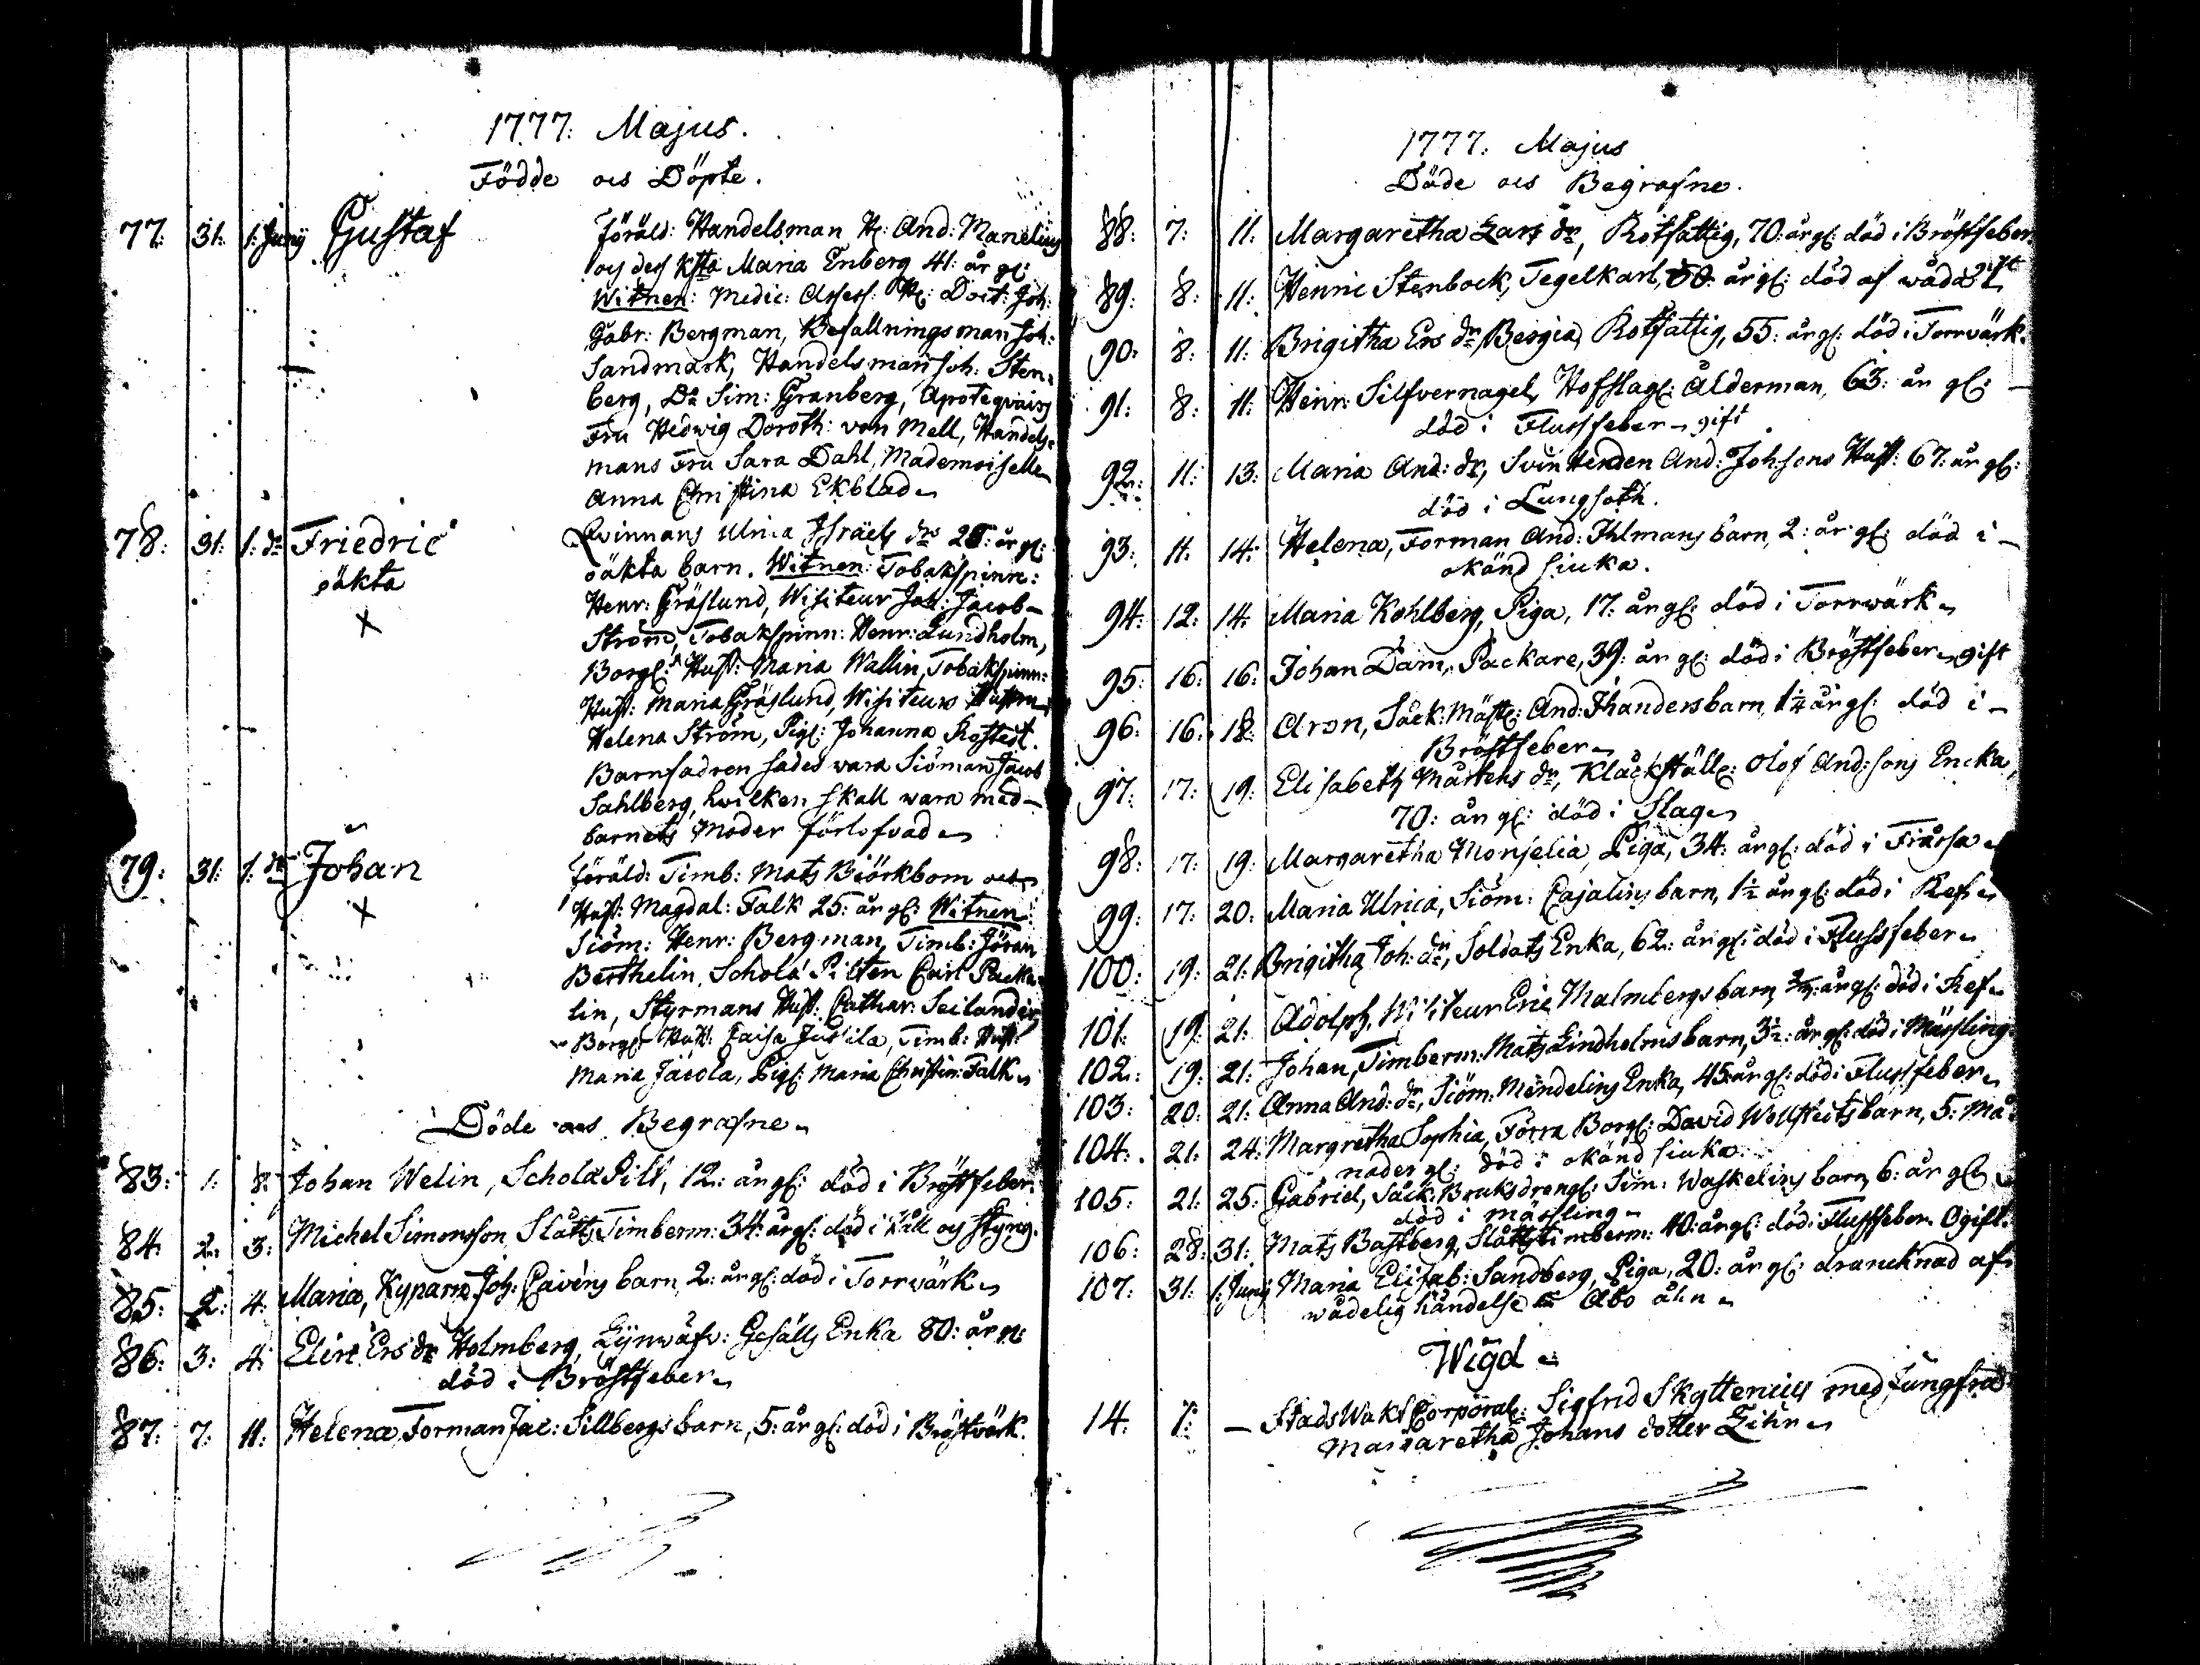 1777: Majus.
Födde och Döpte.
77. 31. 1. Junij Gustaf Föräld: Handelsman H: And: Manelius
och dess Ksta Maria Enberg 41: år gl:
Witnen: Medic: Assess: H: Doct: Joh:
Gabr: Bergman, Befallningsman Joh:
Sandmark, Handelsman Joh: Sten-
berg, Do Sim: Granberg, Apoteqvairs
Fru Hedwig Doroth: von Mell, Handels-
mans Fru Sara Dahl, Mademoiselle
Anna Christina Ekblad
78: 31: 1. do Friedric Qvinnans Ulrica Israels dr 25: år gl:
oäkta oäkta barn. Witnen: Tobakspinn:
x Henr: Gräslund, Wisiteur Joh: Jacob
Ström, Tobakspinn: Henr: Lundholm,
Borgl: Hust: Maria Wallin, Tobakspinn:
Hust: Maria Gräslund, Wisiteurs Hustru
Helena Ström, Pigl: Johanna
Barnfadren sades wara Siöman Jacob
Sahlberg, hwilken skall wara med
barnets Moder förlofvad
79: 31: 1. do Johan Föräld: Timb: Mats Biörkbom och
x Hust: Magdal: Falk 25: år gl: Witnen
Siöm: Henr: Bergman, Timb: Jöran
Berthelin, Schola Pilten Carl Packa-
lin, Styrmans Hust: Cathar: Seilander
Borgl: Hust: Caisa Jusila, Timb: Hust:
Maria Jacola, Pigl: Maria Christin: Falk
Döde och Begrafne
83: 1. 8: Johan Welin, Schola Pilt, 12: år gl: död i Bröstfeber.
84. 2. 3: Michel Simonsson Slåtts Timberm: 34: år gl: död i håll och styng.
85: 2: 4: Maria, Kyparn Joh: Cavéns barn, 2: år gl: död i Torrwärk
86: 3: 4: Elin Ers dr Holmberg, Lijnwäfv: Gesälls Enka 80: år gl:
död i Bröstfeber
87: 7: 11: Helena, Forman Jac: Sillbergs barn, 5: år gl: död i Bröstvärk.
1777: Majus
Döde och Begrafne.
88: 7: 11: Margaretha Lars dr, Rotfattig, 70: år gl: död i Bröstfeber.
89: 8: 11: Henric Stenbock, Tegelkarl, 50: år gl: död af wåda gift
90: 8: 11: Brigitha Ers dr Rotfattig, 55: år gl: död i Torrvärk.
91: 8: 11: Henr: Silfvernagel, Hofslag: Ålderman, 63: år gl:
död i Flussfeber gift
92: 11: 13: Maria And: dr, And: Johsons Hust: 67: år gl:
död i Lungsoth.
93: 11: 14: Helena, Forman And: Ihlmans barn, 2: år gl: död i
okänd siuka.
94: 12: 14: Maria Kohlberg, Piga, 17: år gl: död i Torrwärk
95: 16: 16: Johan Dam, Packare, 39: år gl: död i Bröstfeber gift
96: 16: 18: Aron, Säck: Mäst: And: barn, 1¼ år gl: död i
Bröstfeber
97: 17: 19: Elisabeth Mårtens dr, Kläckställ: Olof And:sons Encka,
70: år gl: död i Slag
98: 17: 19: Margaretha Monselia, Piga, 34: år gl: död i Frårsa
99: 17: 20: Maria Ulrica, Siöm: Cajalins barn, 1½ år gl: död i Ref
100: 19: 21: Brigitha Joh: dr, Soldats Enka, 62: år gl: död i Flussfeber
101. 19: 21: Adolph, Wisiteur Eric Malmbergs barn, år gl: död i Ref
102: 19: 21: Johan, Timberm: Mats Lindholms barn, 3½: år gl: död i Mässling
103: 20: 21: Anna And: dr, Siöm: Mendelins Enka, 45: år gl: död i Flussfeber
104: 21: 24: Margretha Sophia, Förra Borgl: David barn, 5: Må-
nader gl: död i okänd siuka.
105: 21: 25: Gabriel, Säck: Bruksdrengl: Sim: Waskelins barn, 6: år gl:
död i mässling
106: 28: 31: Mats Bastberg, Slåttstimberm: 40: år gl: död i Flussfeber. Ogift.
107: 31: 1. Junij Maria Elisab: Sandberg, Piga, 20: år gl: drancknad af
wådelig händelse Åbo åhn
Wigd
14. 1: Stads Wakt Corporal: Sigfrid Skyttenius med Jungfrun
Margaretha Johans dotter